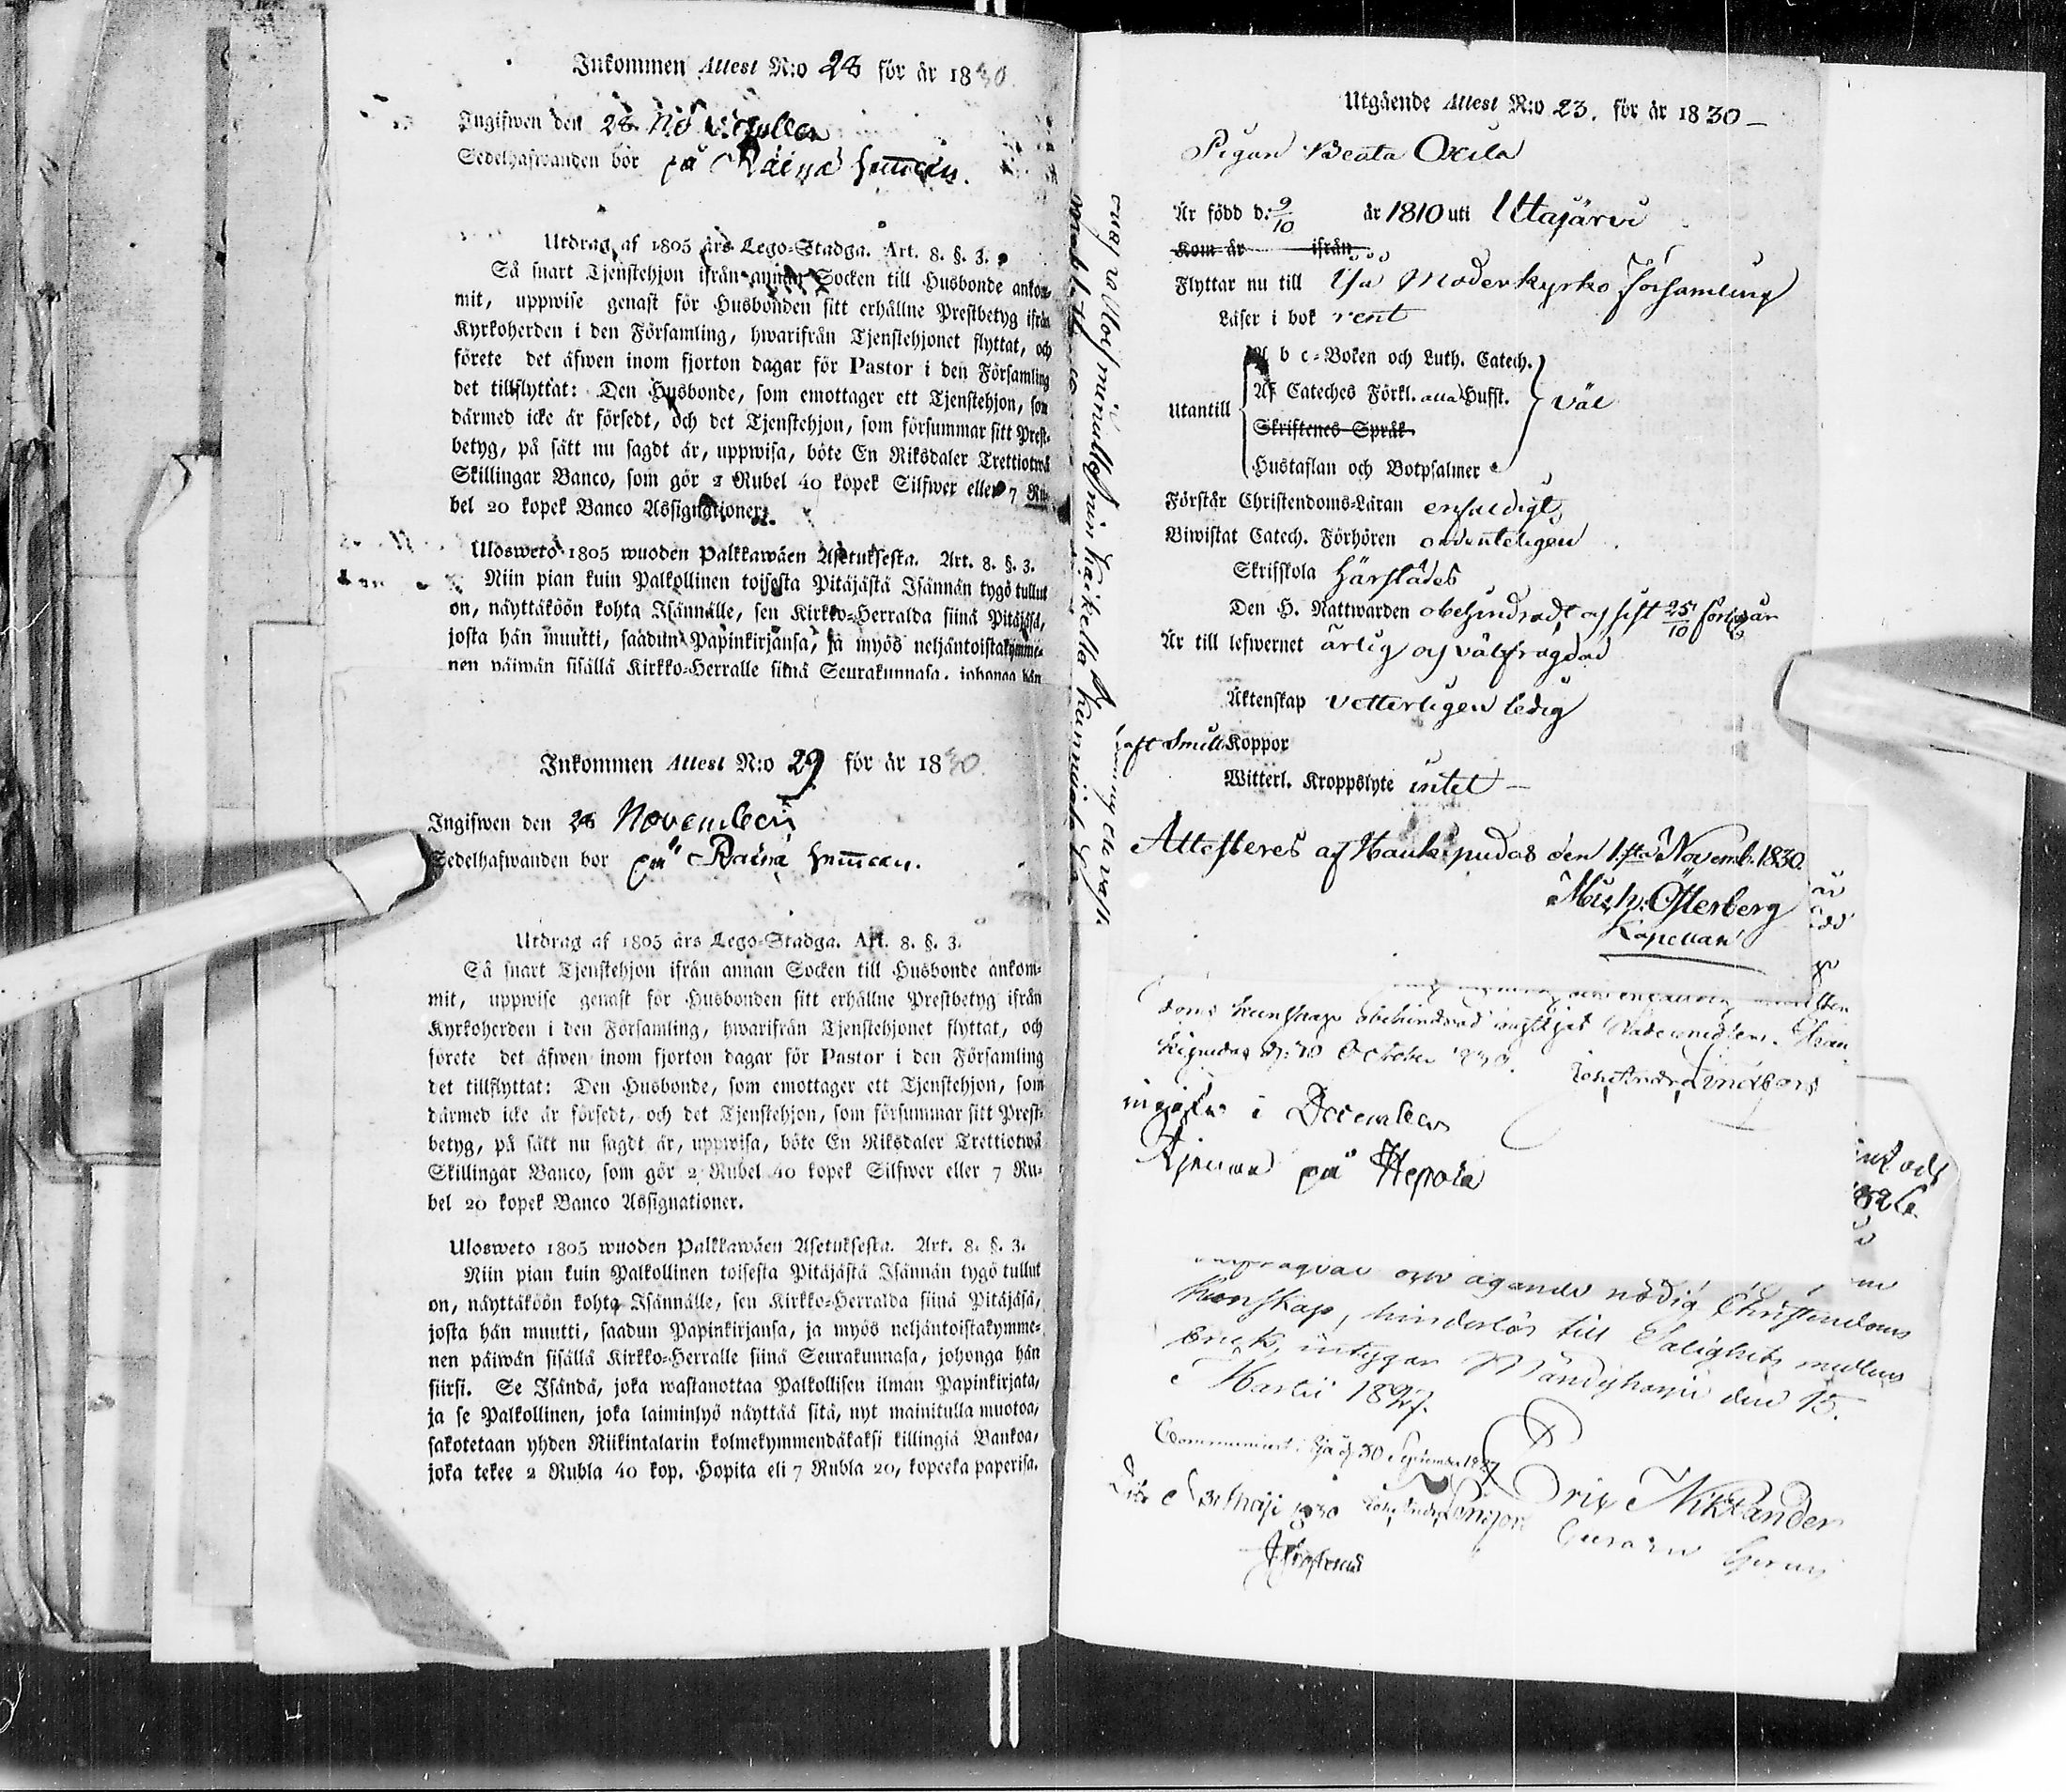 Inkommen Attest N:o 28 för år 1830.
Ingifwen den 28 November
Sedelhafwanden bor på Räinä hemman.
Utdrag af 1805 års Lego-Stadga. Art. 8. §. 3.
Så snart Tjenstehjon ifrån annan Socken till Husbonde ankom-
mit, uppwise genast för Husbonden sitt erhållne Prestbetyg ifrån
Kyrkoherden i den Församling, hwarifrån Tjenstehjonet flyttat, och
förete det äfwen inom fjorton dagar för Pastor i den Församling
det tillflyttat: Den Husbonde, som emottager ett Tjenstehjon, som
därmed icke är försedt, och det Tjenstehjon, som försummar sitt Prest-
betyg, på sätt nu sagdt är, uppwisa, böte En Riksdaler Trettiotwå
Skillingar Banco, som gör 2 Rubel 40 kopek Silfwer eller 7 Ru-
bel 20 kopek Banco Assignationer.
Ulosweto 1805 wuoden Palkkawäen Asetuksesta. Art. 8. §. 3.
Niin pian kuin Palkollinen toisesta Pitäjästä Isännän tygö tullut
on, näyttäköön kohta Isännälle, sen Kirkko-Herralda siinä Pitäjäsä,
josta hän muutti, saadun Papinkirjansa, ja myös neljäntoistakymme-
nen päiwän sisällä Kirkko-Herralle siinä Seurakunnasa, johonga hän
Inkommen Attest N:o 29 för år 1830.
Ingifwen den 28 November
Sedelhafwanden bor på Räinä hemman.
Utdrag af 1805 års Lego-Stadga. Art. 8. §. 3.
Så snart Tjenstehjon ifrån annan Socken till Husbonde ankom-
mit, uppwise genast för Husbonden sitt erhållne Prestbetyg ifrån
Kyrkoherden i den Församling, hwarifrån Tjenstehjonet flyttat, och
förete det äfwen inom fjorton dagar för Pastor i den Församling
det tillflyttat: Den Husbonde, som emottager ett Tjenstehjon, som
därmed icke är försedt, och det Tjenstehjon, som försummar sitt Prest-
betyg, på sätt nu sagdt är, uppwisa, böte En Riksdaler Trettiotwå
Skillingar Banco, som gör 2 Rubel 40 kopek Silfwer eller 7 Ru-
bel 20 kopek Banco Assignationer.
Ulosweto 1805 wuoden Palkkawäen Asetuksesta. Art. 8. §. 3.
Niin pian kuin Palkollinen toisesta Pitäjästä Isännän tygö tullut
on, näyttäköön kohta Isännälle, sen Kirkko-Herralda siinä Pitäjäsä,
josta hän muutti, saadun Papinkirjansa, ja myös neljäntoistakymme-
nen päiwän sisällä Kirkko-Herralle siinä Seurakunnasa, johonga hän
siirsi. Se Isändä, joka wastanottaa Palkollisen ilman Papinkirjata,
ja se Palkollinen, joka laiminlyö näyttää sitä, nyt mainitulla muotoa,
sakotetaan yhden Riikintalarin kolmekymmendäkaksi killingiä Bankoa,
joka tekee 2 Rubla 40 kop. Hopita eli 7 Rubla 20, kopeeka paperisa.
Utgående Attest N:o 23. för år 1830
Pigan Beata Oxila
Är född d: 9/10 år 1810 uti Utajärvi
Kom år ifrån
Flyttar nu till Ijå Moderkyrko församling
Läser i bok rent
A b c-Boken och Luth. Catech.
Utantill Af Cateches Förkl. alla Hufst. väl
Skriftenes Språk
Hustaflan och Botpsalmer
Förstår Christendoms-Läran enfaldigt
Biwistat Catech. Förhören ordenteligen
Skriftskola härstädes
Den H. Nattwarden obehindradt och sist 25/10
Är till lefwernet ärlig och välfrägdad
Äktenskap vetterligen ledig
haft Små Koppor
Witterl. Kroppslyte intet
Attesteres af Haukipudas den 1sta Novemb. 1830.
Mich: Österberg
Kapellan
doms kunskap obehindrad
October
i December
på Hepola
ägande nödig Christendoms
Kunskap, hinderlös till Salighets medlens
bruk, intygar den 15.
Martii 1827.
Communicerat i Ijå d. 30 September 1827
Maji 1830